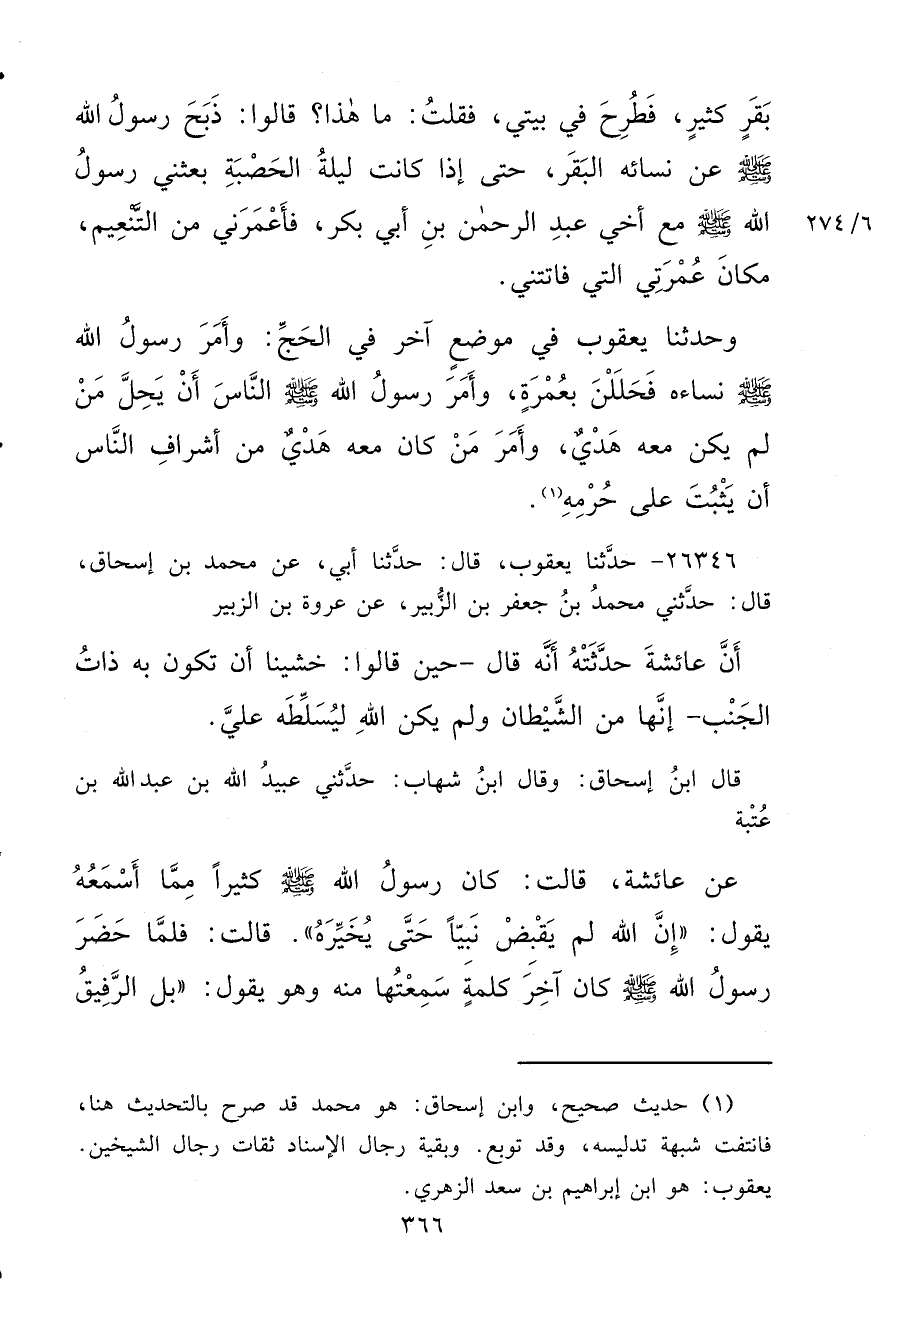 بَقَرٍ كثيرٍ، فَطُرِحَ في بيتي، فقلتُ: ما هٰذا؟ قالوا: ذَبَحَ رسولُ الله
ﷺ عن نسائه البَقَر، حتى إذا كانت ليلةُ الحَصْبَةِ بعثني رسولُ
الله ﷺ مع أخي عبدِ الرحمٰن بنِ أبي بكر، فأَعْمَرَني من التَّنْعِيم، ٢٧٤/٦
مكانَ عُمْرَتِي التي فاتتني.
وحدثنا يعقوب في موضعٍ آخر في الحَجِّ: وأَمَرَ رسولُ الله
ﷺ نساءه فَحَلَلْنَ بعُمْرَةٍ، وأَمَرَ رسولُ الله ﷺ النَّاسَ أَنْ يَحِلَّ مَنْ
لم يكن معه هَدْيٌ، وأَمَرَ مَنْ كان معه هَدْيٌ من أشرافِ النَّاس
أن يَثْبُتَ على حُرْمِهِ(١).
٢٦٣٤٦- حدَّثنا يعقوب، قال: حدَّثنا أبي، عن محمد بن إسحاق،
قال: حدَّثني محمدُ بنُ جعفر بن الزُّبير، عن عروة بن الزبير
أَنَّ عائشةَ حدَّثَتْهُ أَنَّه قال -حين قالوا: خشينا أن تكون به ذاتُ
الجَنْب- إنَّها من الشَّيْطان ولم يكن اللهِ ليُسَلِّطَه عليَّ.
قال ابنُ إسحاق: وقال ابنُ شهاب: حدَّثني عبيدُ الله بن عبدالله بن
عُتْبة
عن عائشة، قالت: كان رسولُ الله ﷺ كثيراً مِمَّا أَسْمَعُهُ
يقول: «إِنَّ الله لم يَقْبِضْ نَبِيّاً حَتَّى يُخَيِّرَهُ». قالت: فلمَّا حَضَرَ
رسولُ الله ﷺ كان آخِرَ كلمةٍ سَمِعْتُها منه وهو يقول: «بل الرَّفِيقُ
(١) حديث صحيح، وابن إسحاق: هو محمد قد صرح بالتحديث هنا،
فانتفت شبهة تدليسه، وقد توبع. وبقية رجال الإسناد ثقات رجال الشيخين.
يعقوب: هو ابن إبراهيم بن سعد الزهري.
٣٦٦